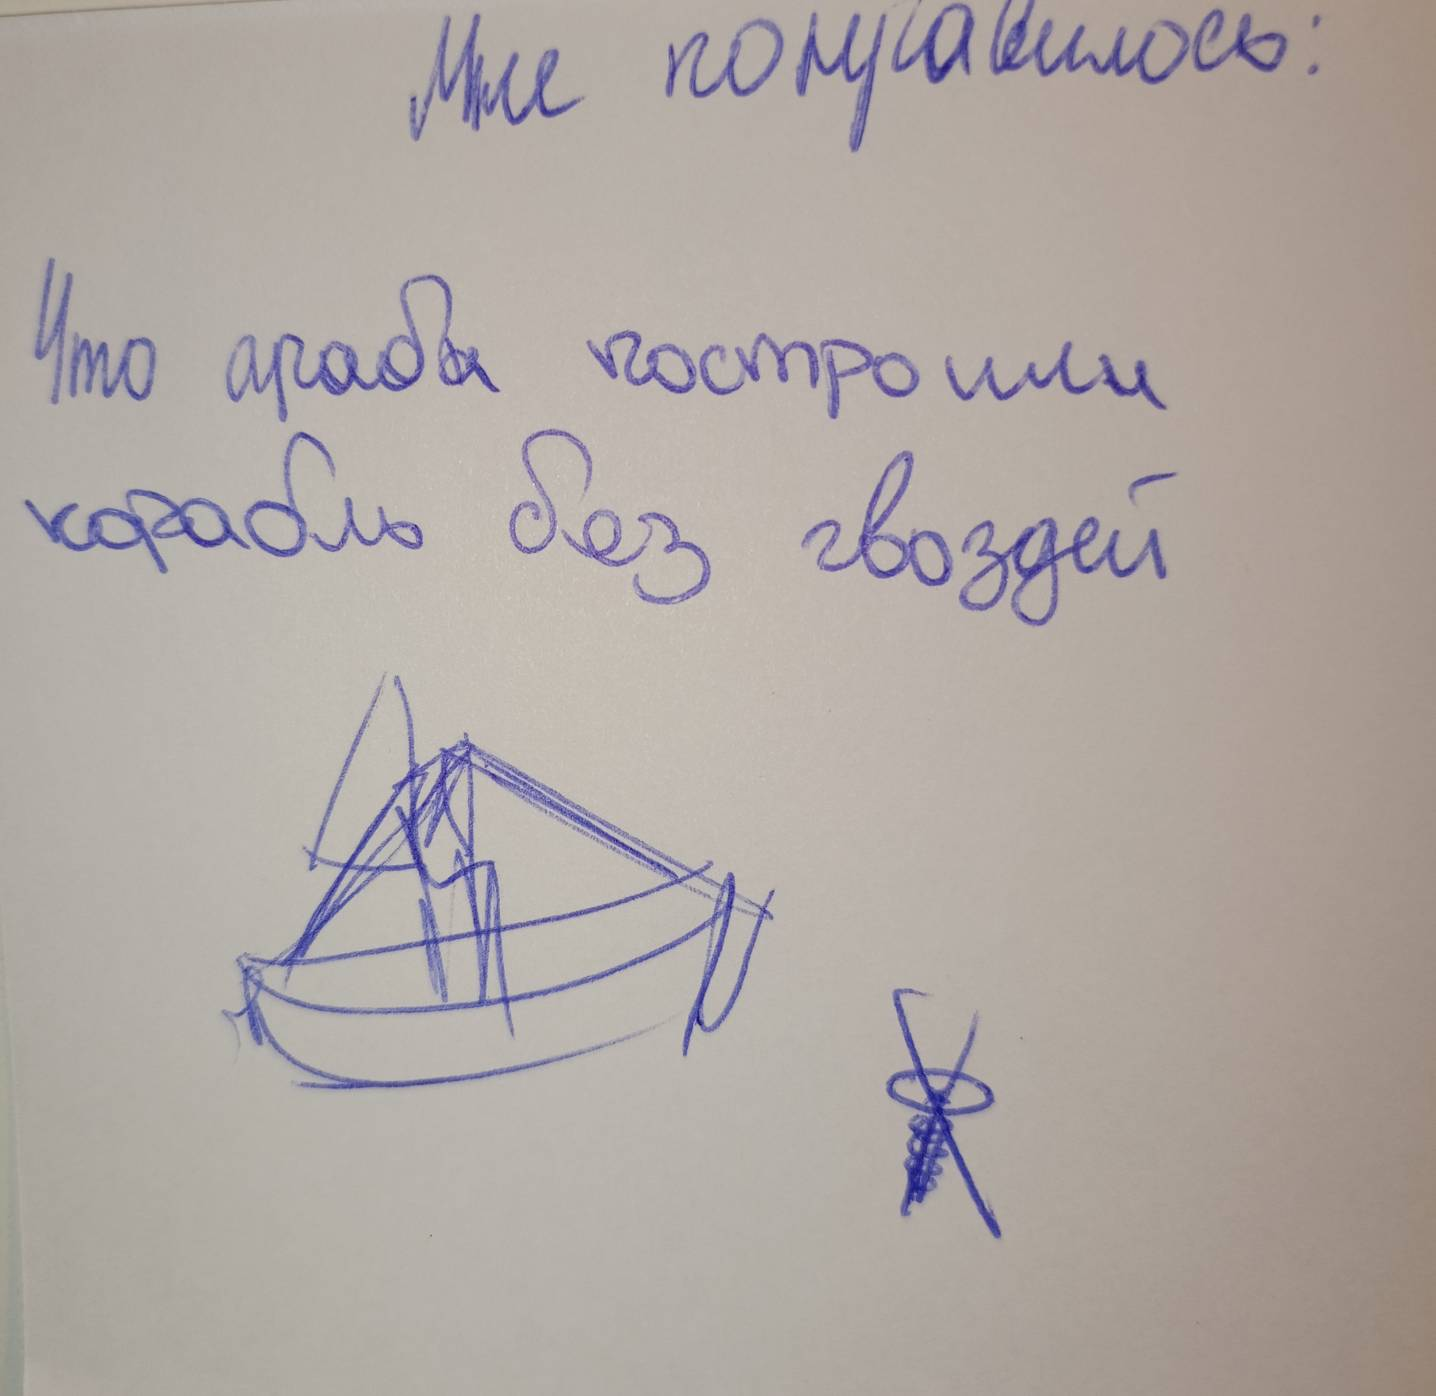 Мне понравилось:
Что арабы построили
корабль без гвоздей